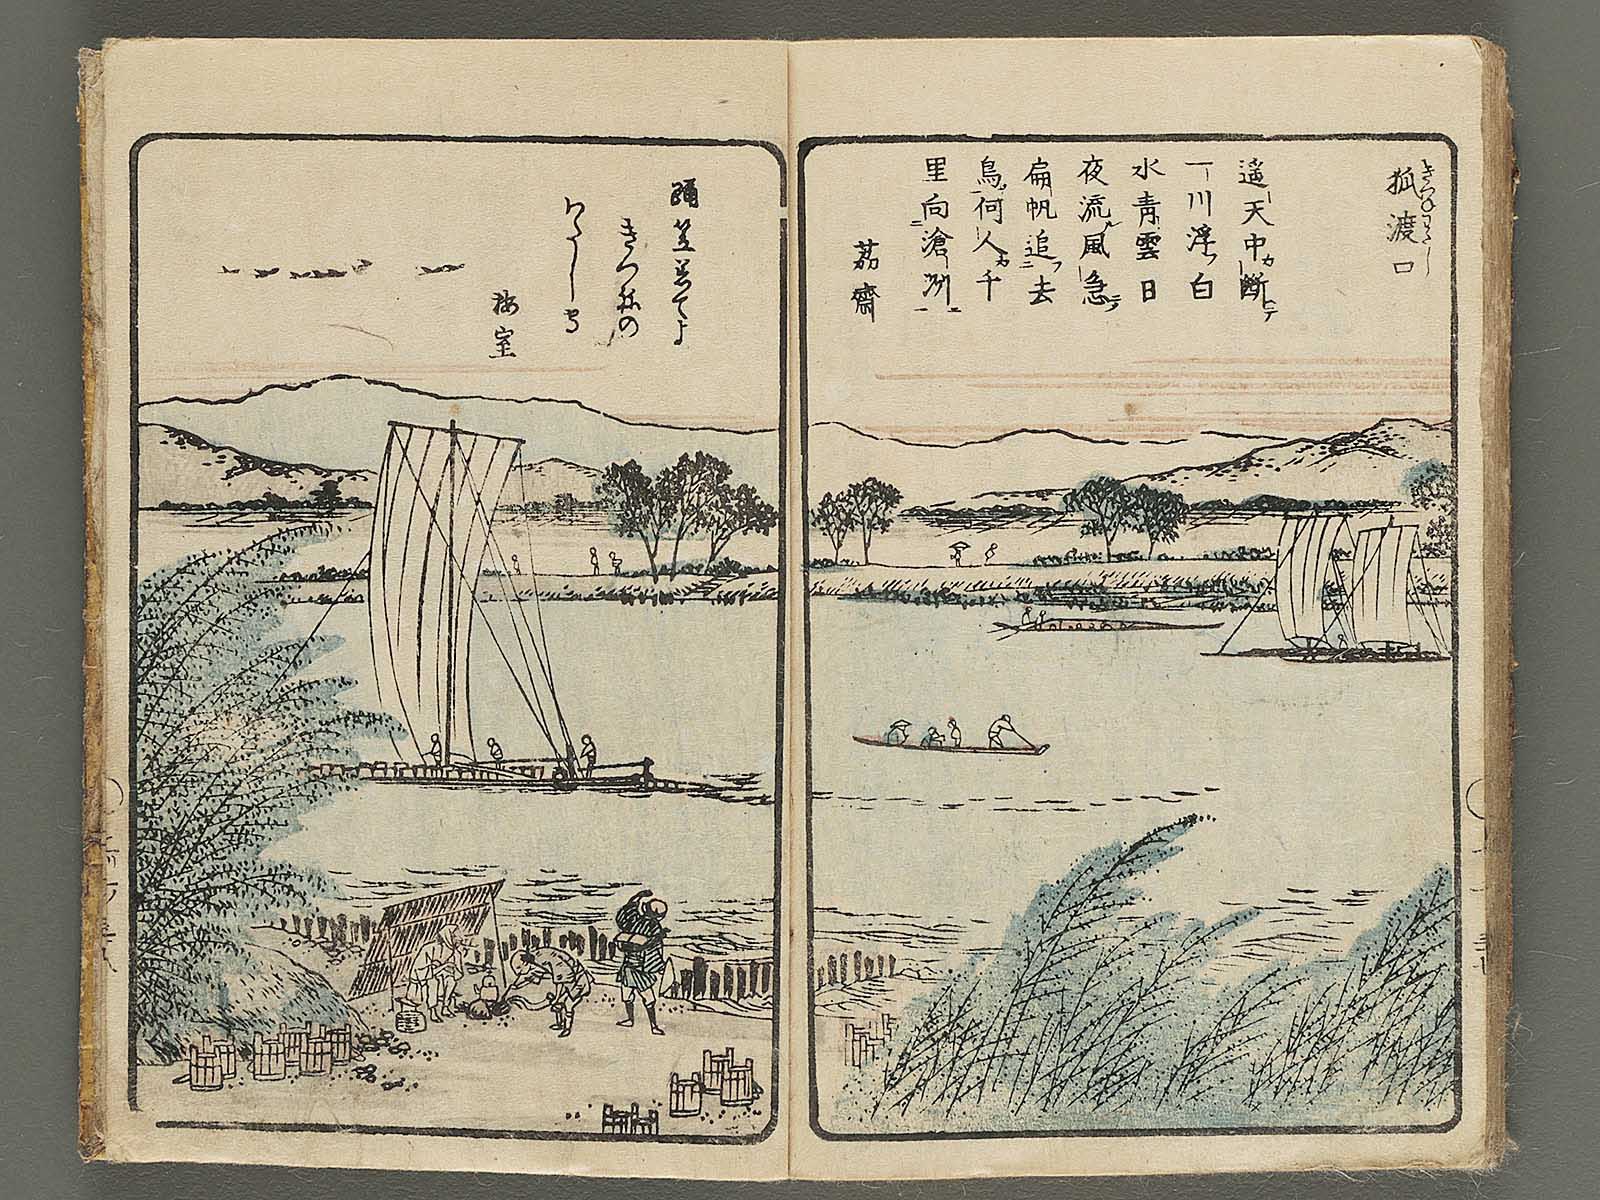 狐渡口
きつねわたし
遥天中断
一川浮白
水青雲日
夜流風急
扁帆追去
鳥何人千
里向滄洲
茘齋
踊笠着てよ
きつねの
わたし
梅室